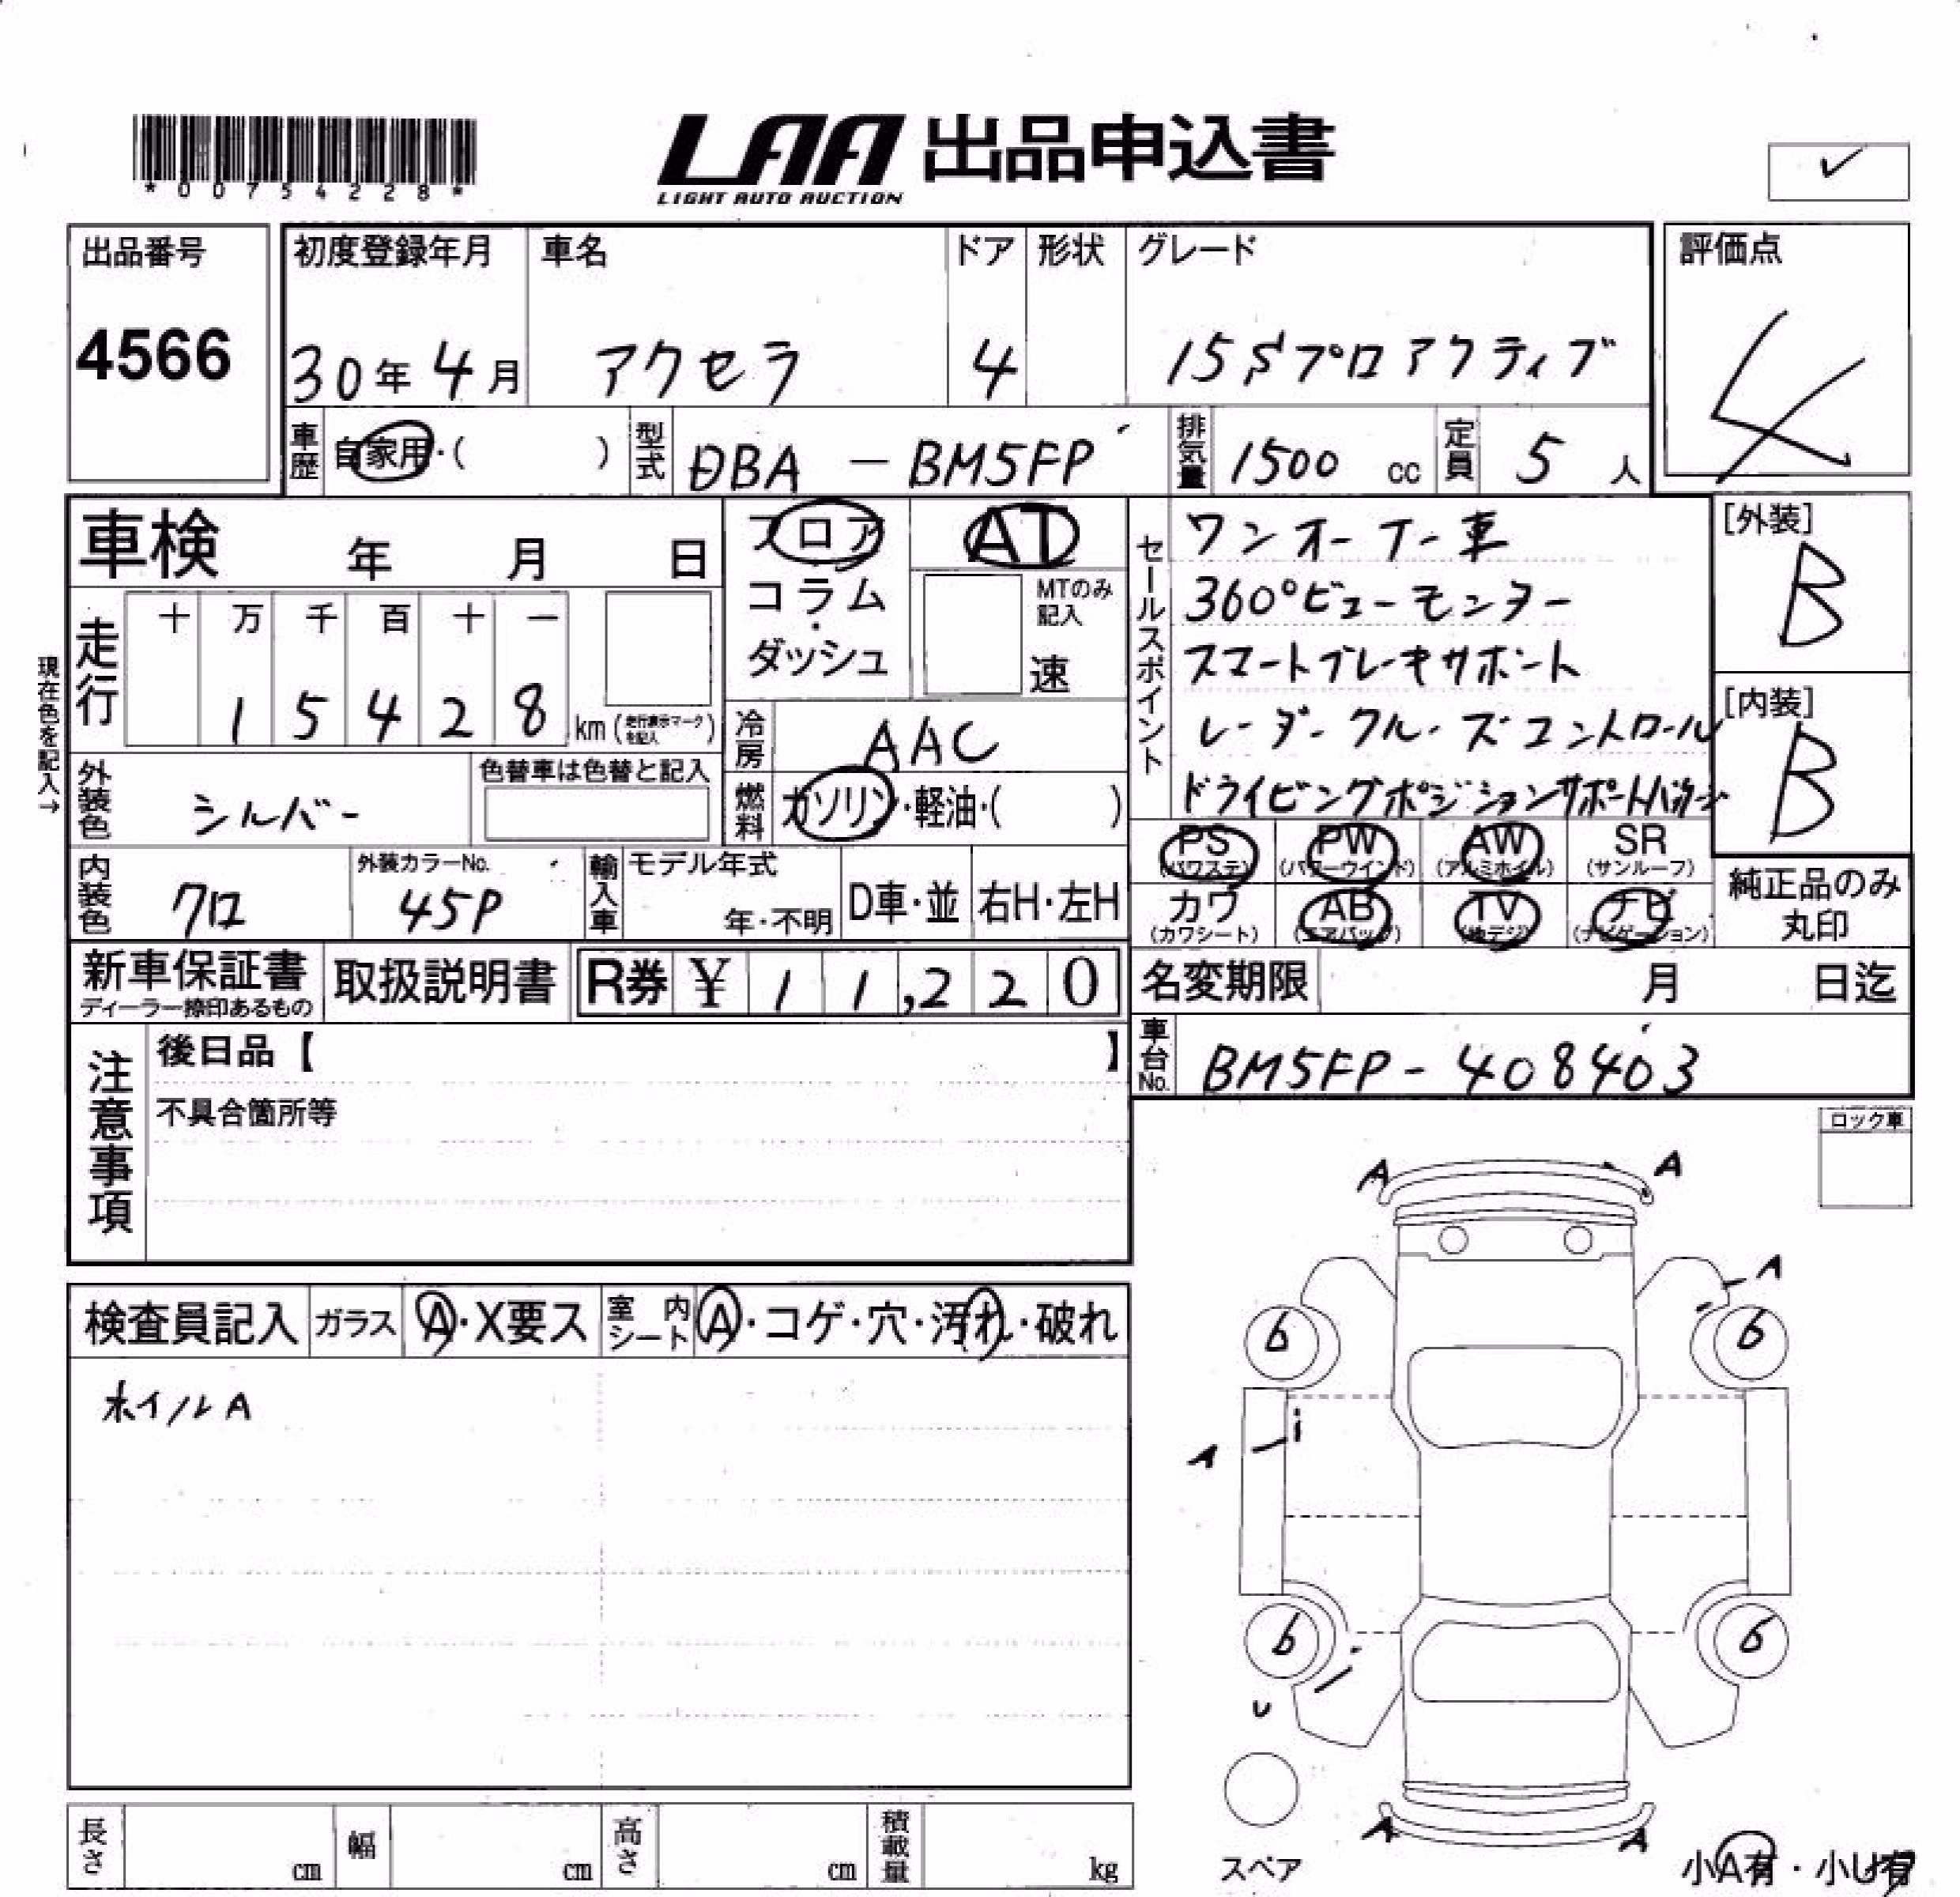 *00754228*
LAA 出品申込書
LIGHT AUTO AUCTION
✓
出品番号
4566
初度登録年月 車名 ドア 形状 グレード
30年 4月 アクセラ 4 15Sプロアクティブ
評価点
4
車歴 自家用・( ) 型式 DBA - BM5FP 排気量 1500 cc 定員 5 人
車検 年 月 日
フロア
・
コラム
・
ダッシュ
AT
MTのみ
記入
速
セールスポイント
ワンオーナー車
360°ビューモニター
スマートブレーキサポート
レーダークルーズコントロール
ドライビングポジションサポートパッケージ
[外装]
B
[内装]
B
現在色を記入→
走行 十 万 千 百 十 一
1 5 4 2 8 km (走行表示マークを記入)
冷房 AAC
燃料 ガソリン・軽油・( )
外装色 シルバー 色替車は色替と記入
内装色 クロ 外装カラーNo. 45P
輸入車 モデル年式 年・不明 D車・並 右H・左H
PS (パワステ) PW (パワーウインド) AW (アルミホイル) SR (サンルーフ)
カワ (カワシート) AB (エアバッグ) TV (地デジ) ナビ (ナビゲーション)
純正品のみ
丸印
新車保証書
ディーラー捺印あるもの
取扱説明書 R券 ¥ 1 1,2 2 0
名変期限 月 日迄
車台No. BM5FP-408403
注意事項
後日品【 】
不具合箇所等
ロック車
検査員記入 ガラス A・X要ス 室内シート A・コゲ・穴・汚れ・破れ
ホイルA
A A
A
6 6
A
6 6
U
A A
スペア
小A有・小U有
長さ cm 幅 cm 高さ cm 積載量 kg